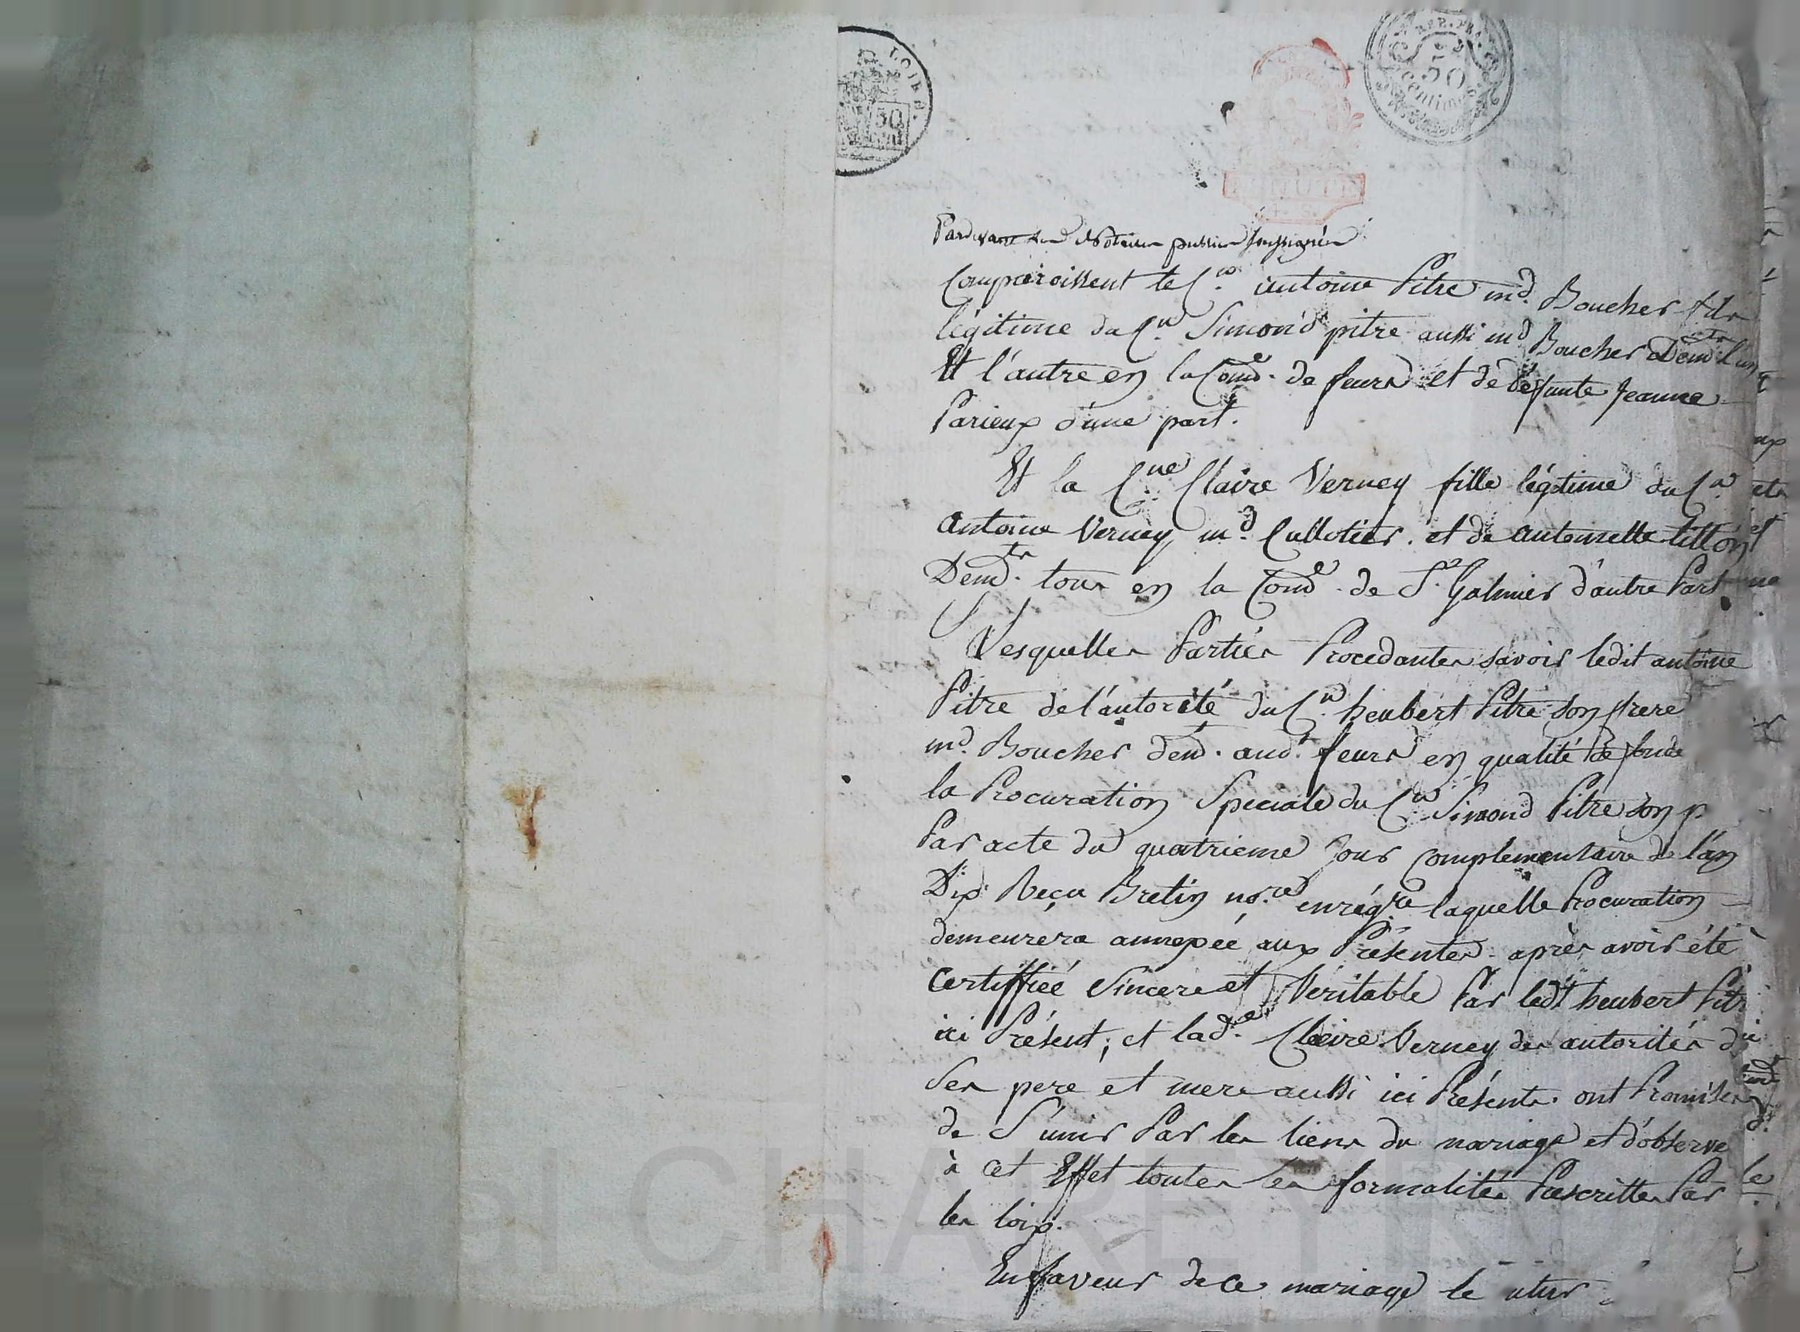 LOIRE.
REP. FRA.
50
Centimes
Pardevant les Notaires publics soussignés
Comparoissent le C.en antoine Pitre md. Boucher fils
légitime du C.en Simond pitre aussi md Boucher Demts l'un
Et l'autre en la Come. de feurs et de défunte Jeanne
Parieux d'une part.
Et la C.ne Claire Verney fille légitime du C.en
Antoine Verney md. Culottier. et de Antoinette tillon
Demts. tous en la Come. de St. Galmier d'autre Part
Lesquelles Parties Procedantes savoir ledit antoine
Pitre de l'autorité du C.en heubert Pitre son frere
md. Boucher demt. aud. feurs en qualité de fondé
la Procuration Speciale du C.en Simond Pitre son p
Par acte du quatrieme Jour complementaire de l'an
Dix Reçu Bretin nore. enrégtré laquelle Procuration
demeurera annexée aux Présentes après avoir été
certiffiée Sincere et Véritable Par ledt heubert Pitr
ici Présent; et lade. Claire Verney des autorités d
ses pere et mere aussi ici Présents. ont Promis
de S'unir Par les liens du mariage et d'observe
à cet Effet toutes les formalités Prescrittes Par
les loix.
En faveur de ce mariage le utur
CHAREY